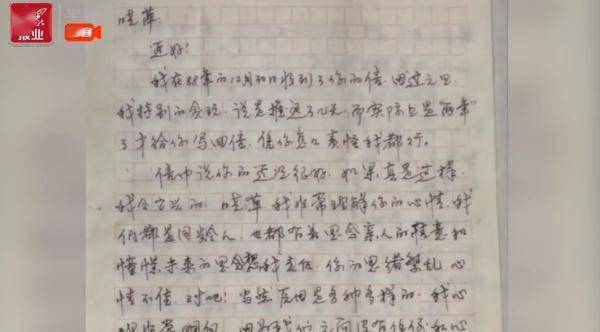 报业
晓萍:
近好!
我在88年的12月30日收到了你的信,因过元旦
我特别的忙,说是推迟了几天,而实际上是"两年"
了才给你写回信,凭你怎么责怪我都行。
信中说你的近况很好,如果真是这样,
我会高兴的!晓萍,我非常理解你的心情,我
们都是同龄人,也都有着思念亲人的情意和
憧憬未来的思想,我走后,你的思绪繁乱,心
情不佳,对吧!当然原因是多种多样的,我心